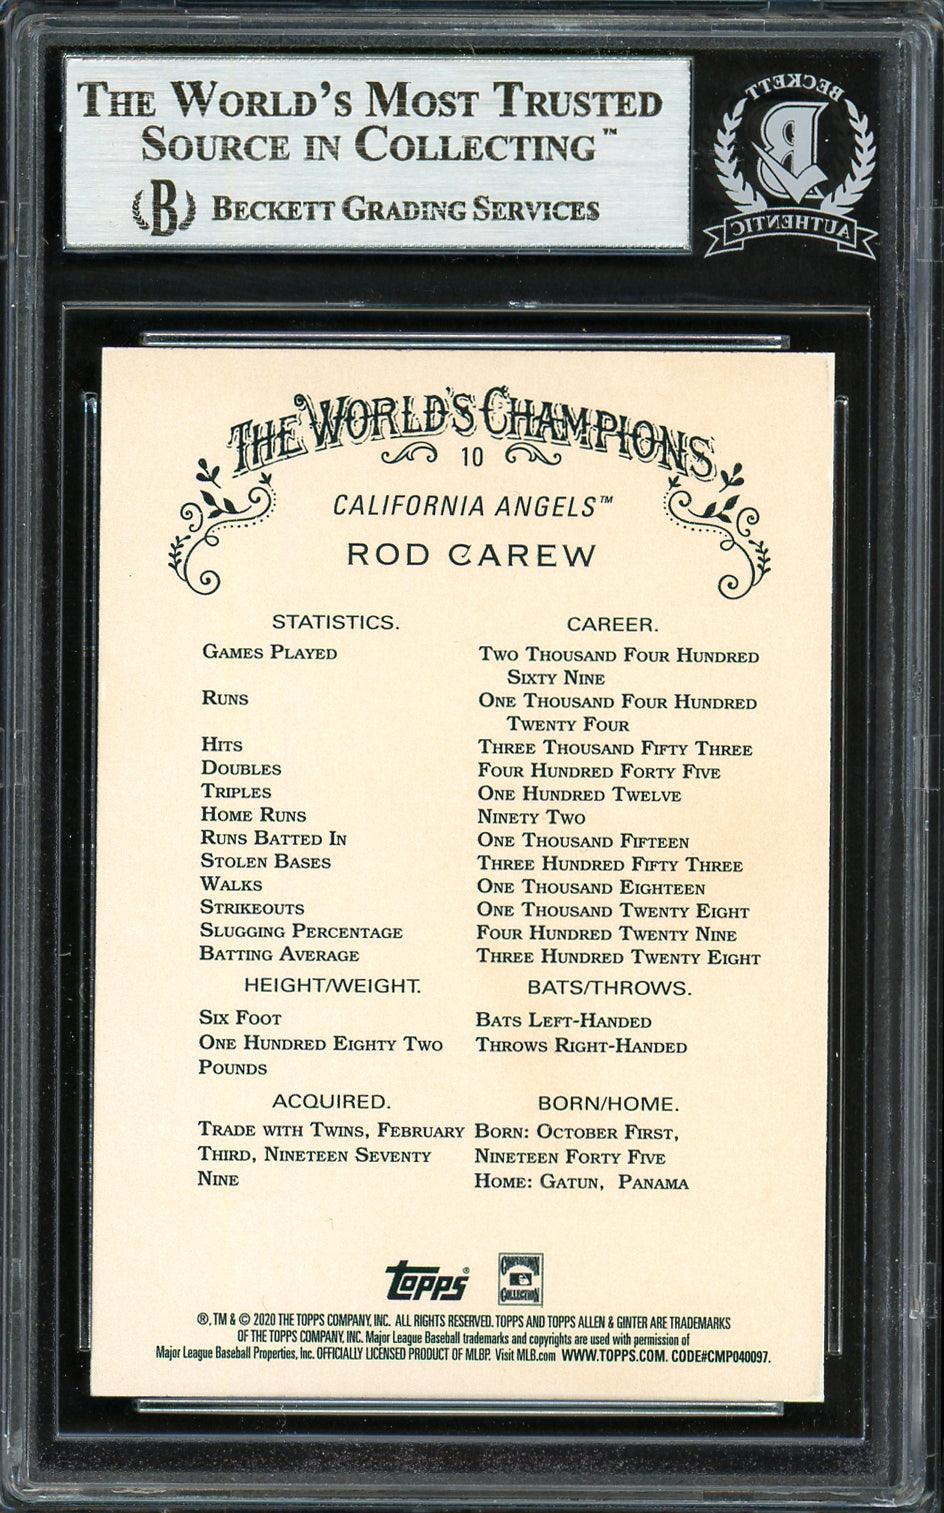 THE WORLD'S MOST TRUSTED
SOURCE IN COLLECTING™
B BECKETT GRADING SERVICES
BECKETT
B
AUTHENTIC
THE WORLD'S CHAMPIONS
10
CALIFORNIA ANGELS™
ROD CAREW
STATISTICS. CAREER.
GAMES PLAYED TWO THOUSAND FOUR HUNDRED
SIXTY NINE
RUNS ONE THOUSAND FOUR HUNDRED
TWENTY FOUR
HITS THREE THOUSAND FIFTY THREE
DOUBLES FOUR HUNDRED FORTY FIVE
TRIPLES ONE HUNDRED TWELVE
HOME RUNS NINETY TWO
RUNS BATTED IN ONE THOUSAND FIFTEEN
STOLEN BASES THREE HUNDRED FIFTY THREE
WALKS ONE THOUSAND EIGHTEEN
STRIKEOUTS ONE THOUSAND TWENTY EIGHT
SLUGGING PERCENTAGE FOUR HUNDRED TWENTY NINE
BATTING AVERAGE THREE HUNDRED TWENTY EIGHT
HEIGHT/WEIGHT. BATS/THROWS.
SIX FOOT BATS LEFT-HANDED
ONE HUNDRED EIGHTY TWO THROWS RIGHT-HANDED
POUNDS
ACQUIRED. BORN/HOME.
TRADE WITH TWINS, FEBRUARY BORN: OCTOBER FIRST,
THIRD, NINETEEN SEVENTY NINETEEN FORTY FIVE
NINE HOME: GATUN, PANAMA
Topps®
COOPERSTOWN
COLLECTION
®, TM & © 2020 THE TOPPS COMPANY, INC. ALL RIGHTS RESERVED. TOPPS AND TOPPS ALLEN & GINTER ARE TRADEMARKS
OF THE TOPPS COMPANY, INC. Major League Baseball trademarks and copyrights are used with permission of
Major League Baseball Properties, Inc. OFFICIALLY LICENSED PRODUCT OF MLBP. Visit MLB.com WWW.TOPPS.COM. CODE#CMP040097.